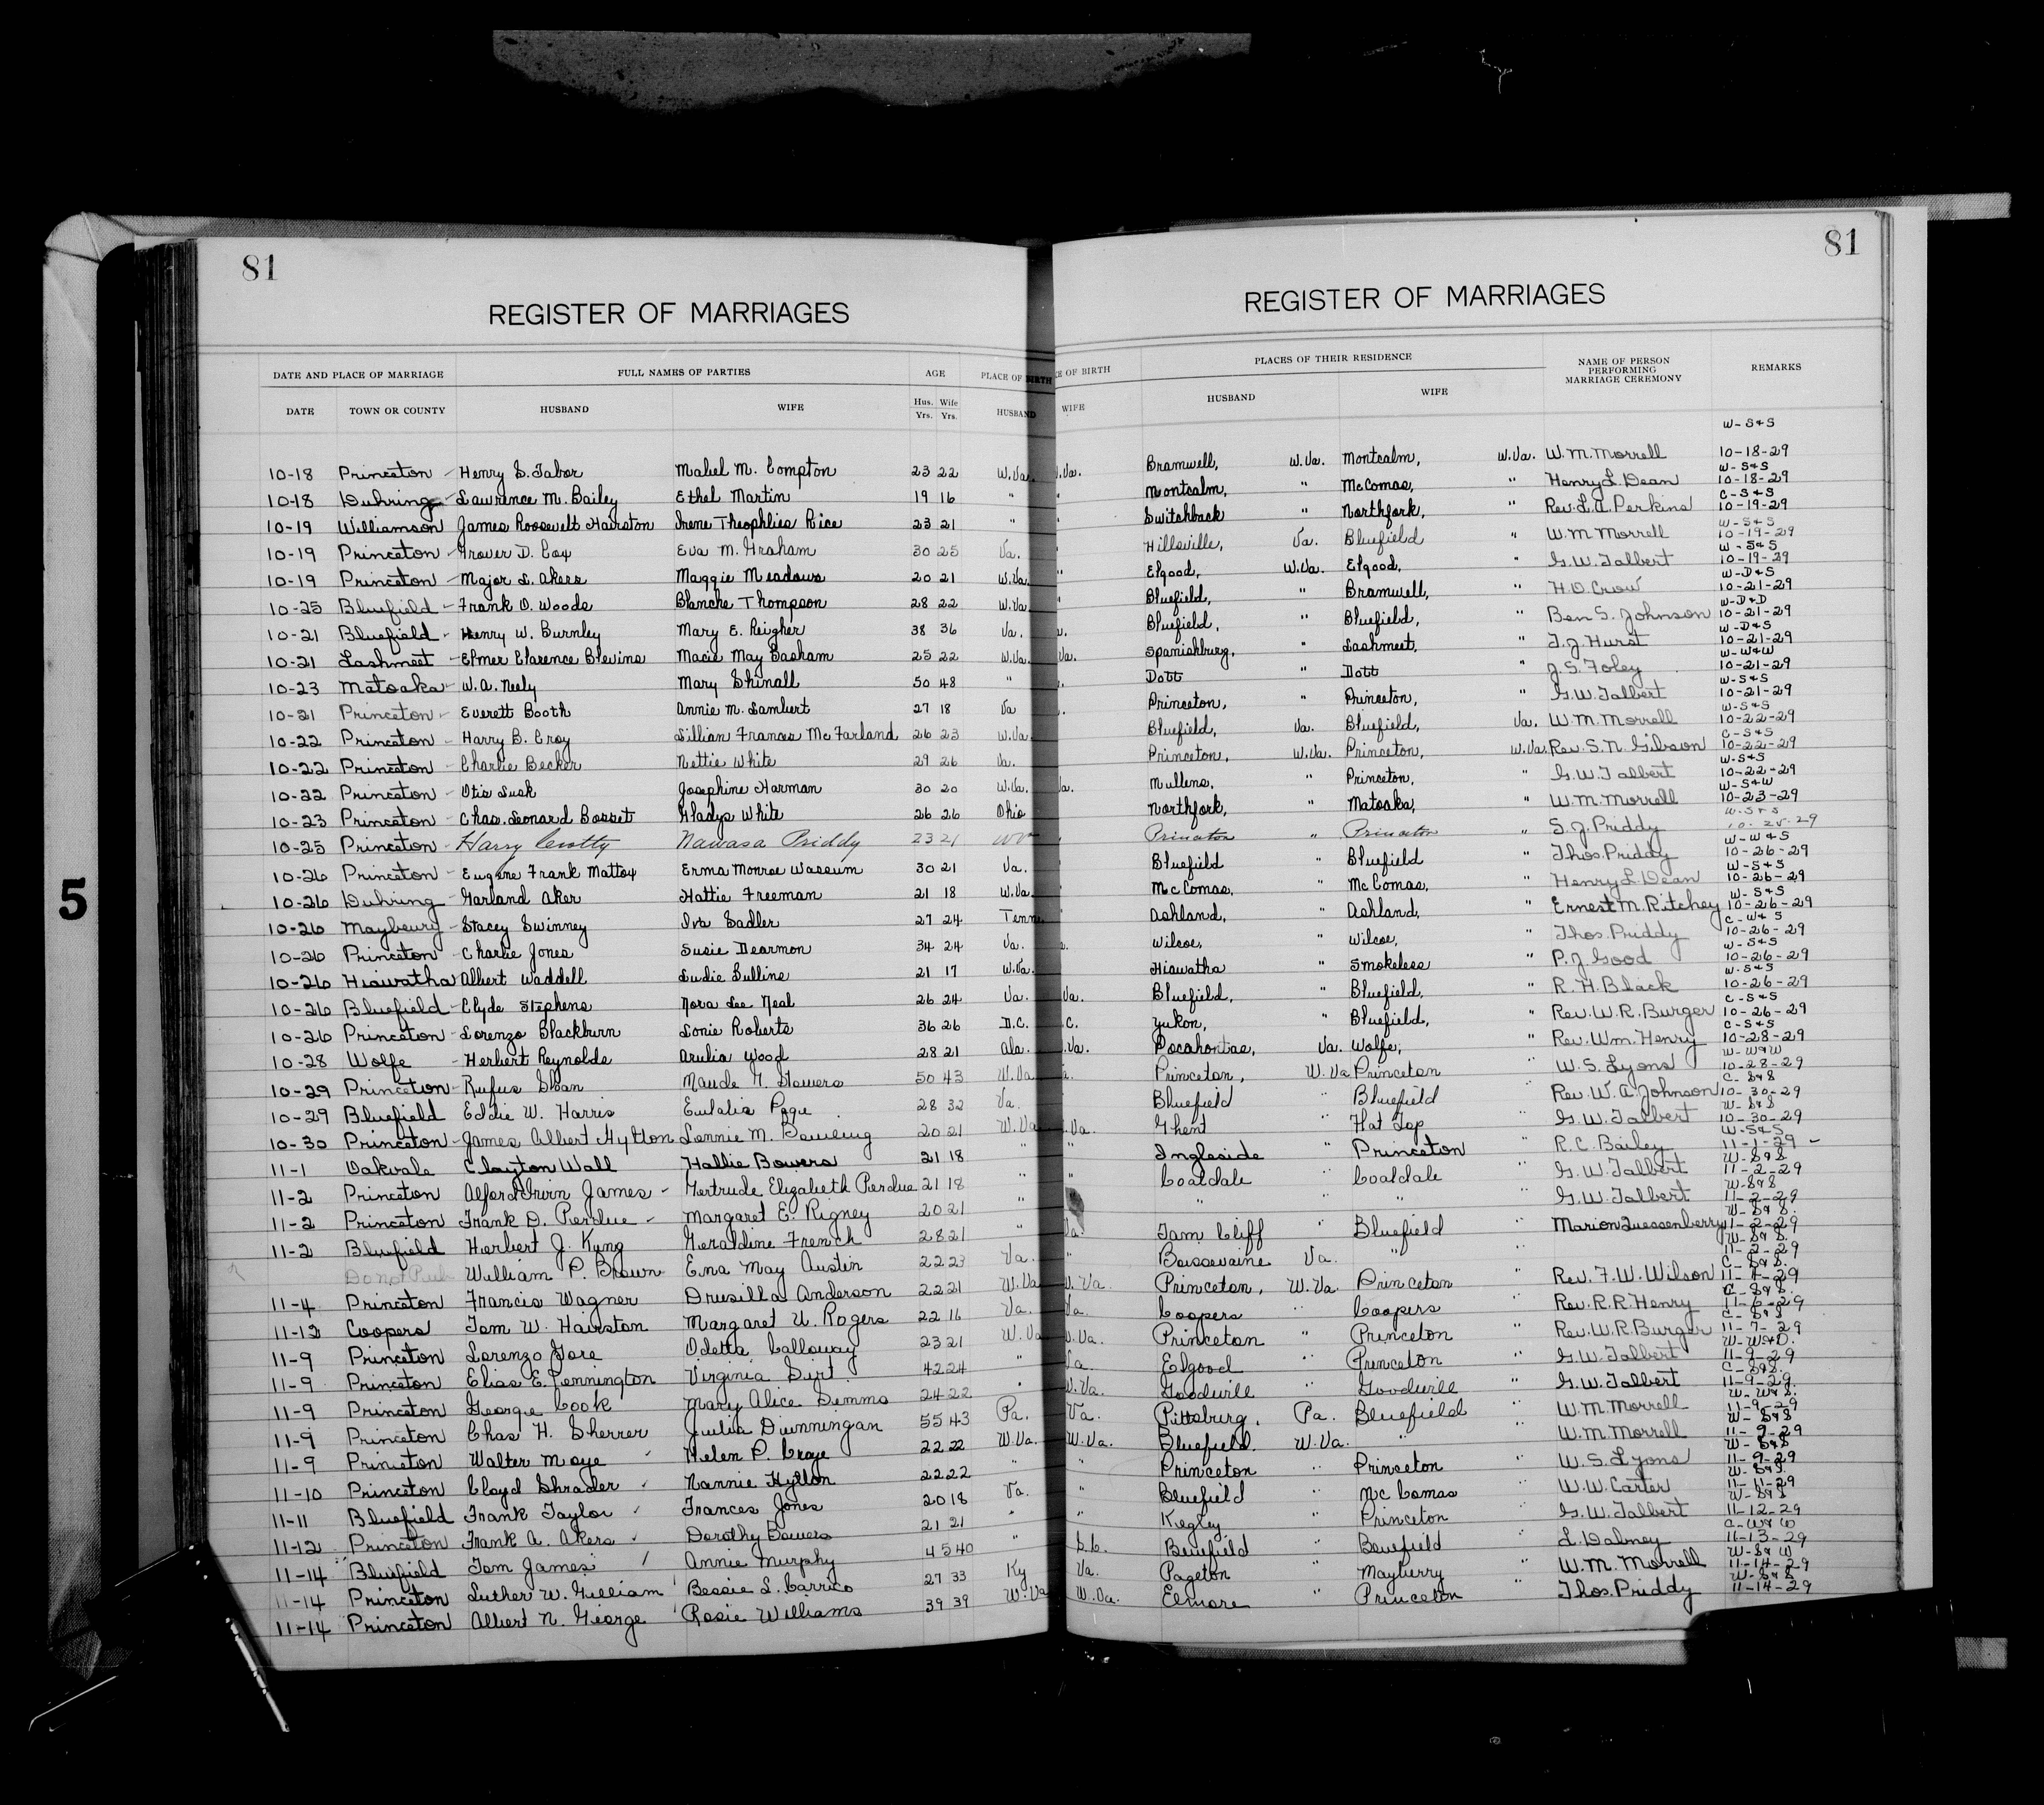 81
81
REGISTER OF MARRIAGES
REGISTER OF MARRIAGES
DATE AND PLACE OF MARRIAGE FULL NAMES OF PARTIES AGE PLACE OF BIRTH CE OF BIRTH PLACES OF THEIR RESIDENCE NAME OF PERSON PERFORMING MARRIAGE CEREMONY REMARKS
DATE TOWN OR COUNTY HUSBAND WIFE Hus. Yrs. Wife Yrs. HUSBAND WIFE HUSBAND WIFE
W-S&S
10-18 Princeton Henry S. Tabor Mabel M. Compton 23 22 W.Va. .Va. Bramwell, W.Va. Montcalm, W.Va. W.M. Morrell 10-18-29
W-S&S
10-18 Duhring Lawrence M. Bailey Ethel Martin 19 16 " " Montcalm, " McComas, " Henry L. Dean 10-18-29
C-S&S
10-19 Williamson James Roosevelt Hairston Irene Theophlies Rice 23 21 " " Switchback " Northfork, " Rev. L.A. Perkins 10-19-29
W-S&S
10-19 Princeton Grover D. Cox Eva M. Graham 30 25 Va. " Hillsville, Va. Bluefield " W.M Morrell 10-19-29
W-S&S
10-19 Princeton Major L. Akers Maggie Meadows 20 21 W.Va. " Elgood, W.Va. Elgood, " G.W. Talbert 10-19-29
W-D&S
10-25 Bluefield Frank O. Woods Blanche Thompson 28 22 W.Va. Bluefield, " Bramwell, " H.O. Crow 10-21-29
W-D&D
10-21 Bluefield Henry W. Burnley Mary E. Reigher 38 36 Va. Bluefield, " Bluefield, " Ben S. Johnson 10-21-29
W-D&S
10-21 Lashmeet Elmer Clarence Blevins Macie May Basham 25 22 W.Va. Va. Spanishburg, " Lashmeet, " T.J. Hurst 10-21-29
W-W&W
10-23 Matoaka W.A. Neely Mary Shinall 50 48 " Dott " Dott " J.S. Foley 10-21-29
W-S&S
10-21 Princeton Everett Booth Annie M. Lambert 27 18 Va Princeton, " Princeton, " G.W. Talbert 10-21-29
W-S&S
10-22 Princeton Harry B. Croy Lillian Frances McFarland 26 23 W.Va. Bluefield, Va. Bluefield, Va. W.M. Morrell 10-22-29
C-S&S
10-22 Princeton Charlie Becker Nettie White 29 26 Va. Princeton, W.Va. Princeton, W.Va. Rev. S.N. Gibson 10-22-29
W-S&S
10-22 Princeton Otis Lusk Josephine Harman 30 20 W.Va. Va. Mullens, " Princeton, " G.W. Talbert 10-22-29
W-S&W
10-23 Princeton Chas. Leonard Bosset Gladys White 26 26 Ohio Northfork, " Matoaka, " W.M. Morrell 10-23-29
W-S&S
10-25 Princeton Harry Crotty Nawasa Priddy 23 21 WV Princeton " Princeton " S.J. Priddy 10-25-29
W-W&S
10-26 Princeton Eugene Frank Mattox Erma Monroe Wassum 30 21 Va. Bluefield " Bluefield " Thos. Priddy 10-26-29
W-S&S
10-26 Duhring Garland Aker Hattie Freeman 21 18 W.Va. McComas, " McComas, " Henry L. Dean 10-26-29
W-S&S
10-26 Maybeury Stacey Swinney Iva Sadler 27 24 Tenn. Ashland, " Ashland, " Ernest M. Ritchey 10-26-29
C-W&S
10-26 Princeton Charlie Jones Susie Dearmon 34 24 Va. Wilcoe, " Wilcoe, " Thos. Priddy 10-26-29
W-S&S
10-26 Hiawatha Albert Waddell Sudie Sullins 21 17 W.Va. Hiawatha " Smokeless " P.J. Good 10-26-29
W-S&S
10-26 Bluefield Clyde Stephens Nora Lee Neal 26 24 Va. Va. Bluefield, " Bluefield, " R.H. Black 10-26-29
C-S&S
10-26 Princeton Lorenzo Blackburn Lonie Roberts 36 26 D.C. .C. Yukon, " Bluefield, " Rev. W.R. Burger 10-26-29
C-S&S
10-28 Wolfe Herbert Reynolds Arulia Wood 28 21 Ala. .Va. Pocahontas, Va. Wolfe, " Rev. Wm. Henry 10-28-29
W-W&W
10-29 Princeton Rufus Sloan Maude G. Stowers 50 43 W.Va. Princeton, W.Va Princeton " W.S. Lyons 10-28-29
C-S&S
10-29 Bluefield Eddie W. Harris Eulalia Page 28 32 Va. Bluefield " Bluefield " Rev. W.A. Johnson 10-30-29
W-S&S
10-30 Princeton James Albert Hylton Lennie M. Bowling 20 21 W.Va .Va. Ghent " Flat Top " G.W. Talbert 10-30-29
W-S&S
11-1 Oakvale Clayton Wall Hallie Bowers 21 18 " " Ingleside " Princeton " R.C. Bailey 11-1-29
W-S&S
11-2 Princeton Alford Irvin James Gertrude Elizabeth Perdue 21 18 " " Coaldale " Coaldale " G.W. Talbert 11-2-29
W-S&S
11-2 Princeton Frank D. Perdue Margaret E. Rigney 20 21 " " " " " " G.W. Talbert 11-2-29
W-S&S.
11-2 Bluefield Herbert J. Kung Geraldine French 28 21 " Va. Jam Cliff " Bluefield " Marion Quessenberry 11-2-29
W-S&S.
Do not Pub William P. Brown Ena May Austin 22 23 Va. " Boissevaine Va. " " 11-2-29
C-S&S.
11-4 Princeton Francis Wagner Drusilla Anderson 22 21 W.Va W.Va. Princeton, W.Va. Princeton " Rev. F.W. Wilson 11-4-29
C-S&S.
11-12 Coopers Tom W. Hairston Margaret U. Rogers 22 16 Va. Va. Coopers " Coopers " Rev. R.R. Henry 11-6-29
C-S&S
11-9 Princeton Lorenzo Gore Odetta Calloway 23 21 W.Va W.Va. Princeton " Princeton " Rev. W.R. Burger 11-7-29
W-W&D.
11-9 Princeton Elias E. Pennington Virginia Sirt 42 24 " Va. Elgood " Princeton " G.W. Talbert 11-9-29
C-S&S.
11-9 Princeton George Cook Mary Alice Simms 24 22 " W.Va. Goodwill " Goodwill " G.W. Talbert 11-9-29.
W-W&S.
11-9 Princeton Chas H. Sherrer Julia Dunningan 55 43 Pa. Va. Pittsburg, Pa. Bluefield " W.M. Morrell 11-9-29
W-S&S
11-9 Princeton Walter Maye Helen P. Craye 22 22 W.Va. W.Va. Bluefield, W.Va. " " W.M. Morrell 11-9-29
W-S&S
11-10 Princeton Cloyd Shrader Nannie Hylton 22 22 " " Princeton " Princeton " W.S. Lyons 11-9-29
W-S&S.
11-11 Bluefield Frank Taylor Frances Jones 20 18 Va. " Bluefield " McComas " W.W. Carter 11-11-29
W-S&S
11-12 Princeton Frank A. Akers Dorothy Bowers 21 21 " " Kegley " Princeton " G.W. Talbert 11-12-29
C-W&W
11-14 Bluefield Tom James Annie Murphy 45 40 " S.C. Bluefield " Bluefield " L. Dabney 11-13-29
W-S&W
11-14 Princeton Luther W. Gilliam Bessie L. Carrico 27 33 Ky Va. Pageton " Mayberry " W.M. Morrell 11-14-29
W-S&S
11-14 Princeton Albert N. George Rosie Williams 39 39 W.Va W.Va. Elmore " Princeton Thos. Priddy 11-14-29
5